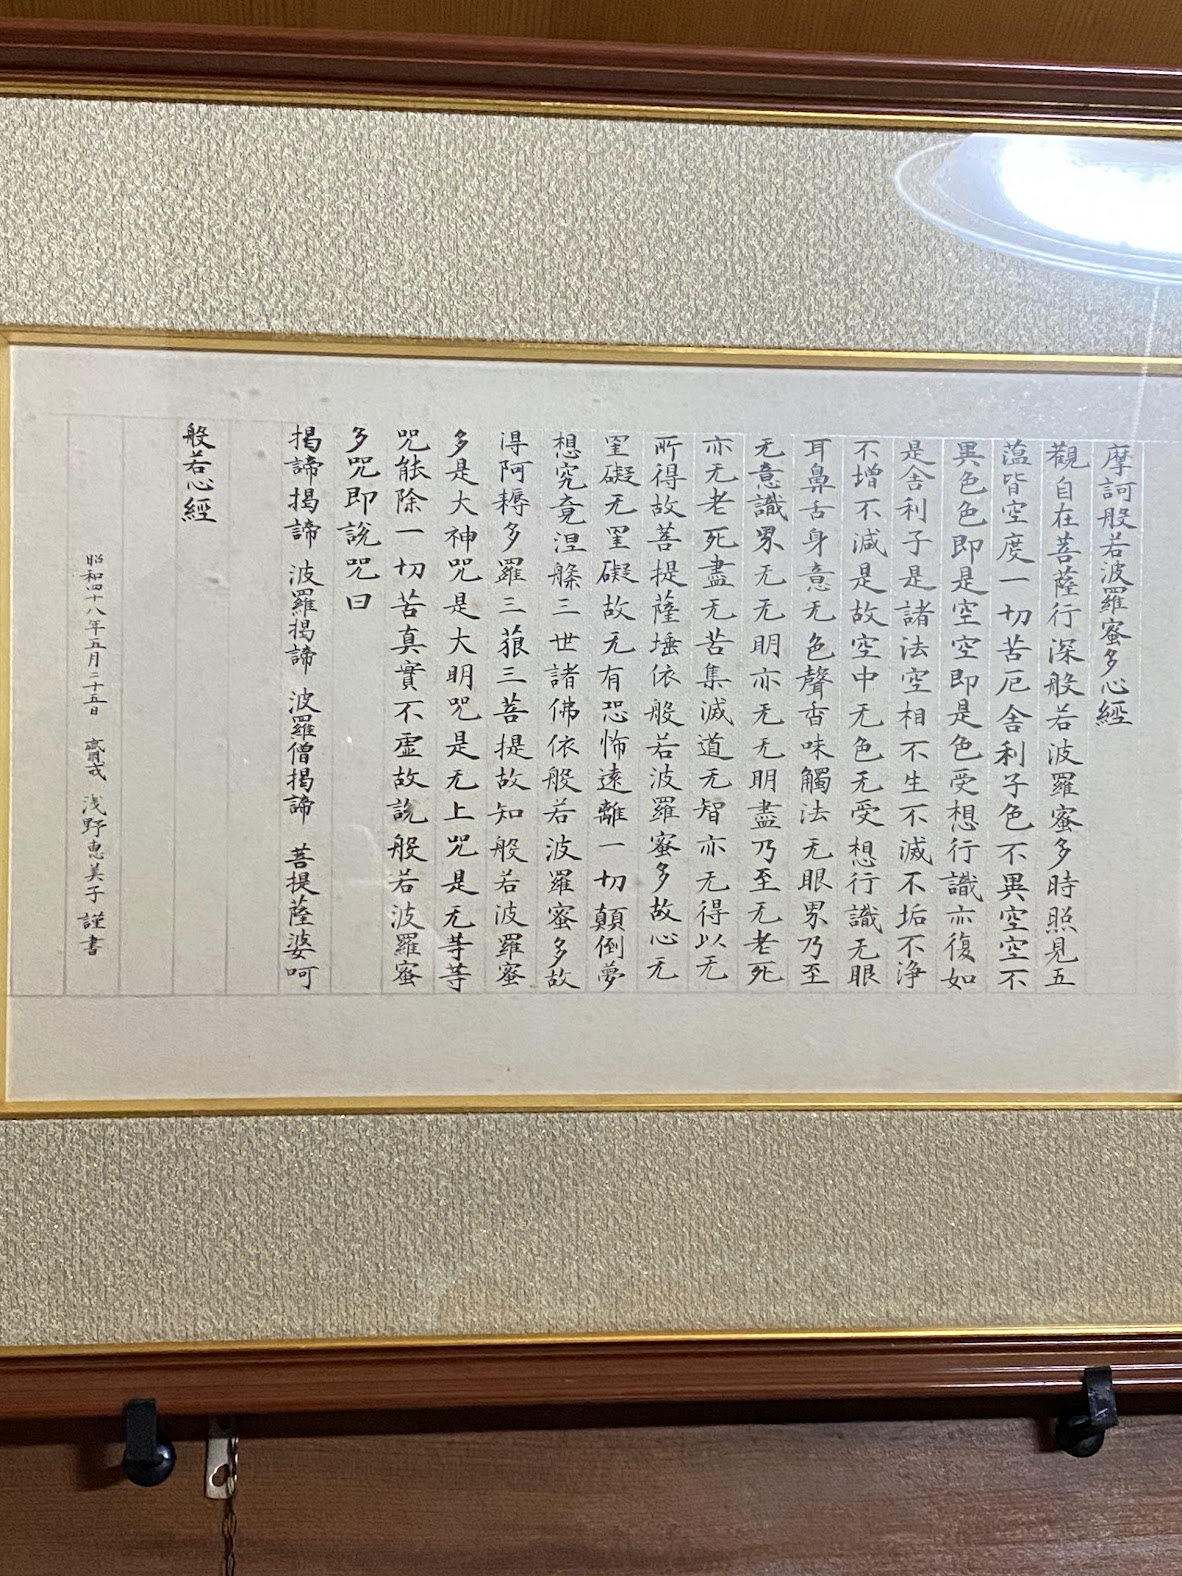 摩訶般若波羅蜜多心經
觀自在菩薩行深般若波羅蜜多時照見五
蕰皆空度一切苦厄舎利子色不異空空不
異色色即是空空即是色受想行識亦復如
是舎利子是諸法空相不生不滅不垢不浄
不增不減是故空中无色无受想行識无眼
耳鼻舌身意无色聲香味觸法无眼界乃至
无意識界无无明亦无无明盡乃至无老死
亦无老死盡无苦集滅道无智亦无得以无
所得故菩提薩埵依般若波羅蜜多故心无
罣礙无罣礙故无有恐怖遠離一切顛倒夢
想究竟涅槃三世諸佛依般若波羅蜜多故
得阿耨多羅三藐三菩提故知般若波羅蜜
多是大神咒是大明咒是无上咒是无等等
咒能除一切苦真實不虚故説般若波羅蜜
多咒即説咒曰
揭諦揭諦 波羅揭諦 波羅僧揭諦 菩提薩婆呵
般若心經
昭和四十八年五月二十五日 齋戒 浅野恵美子 謹書